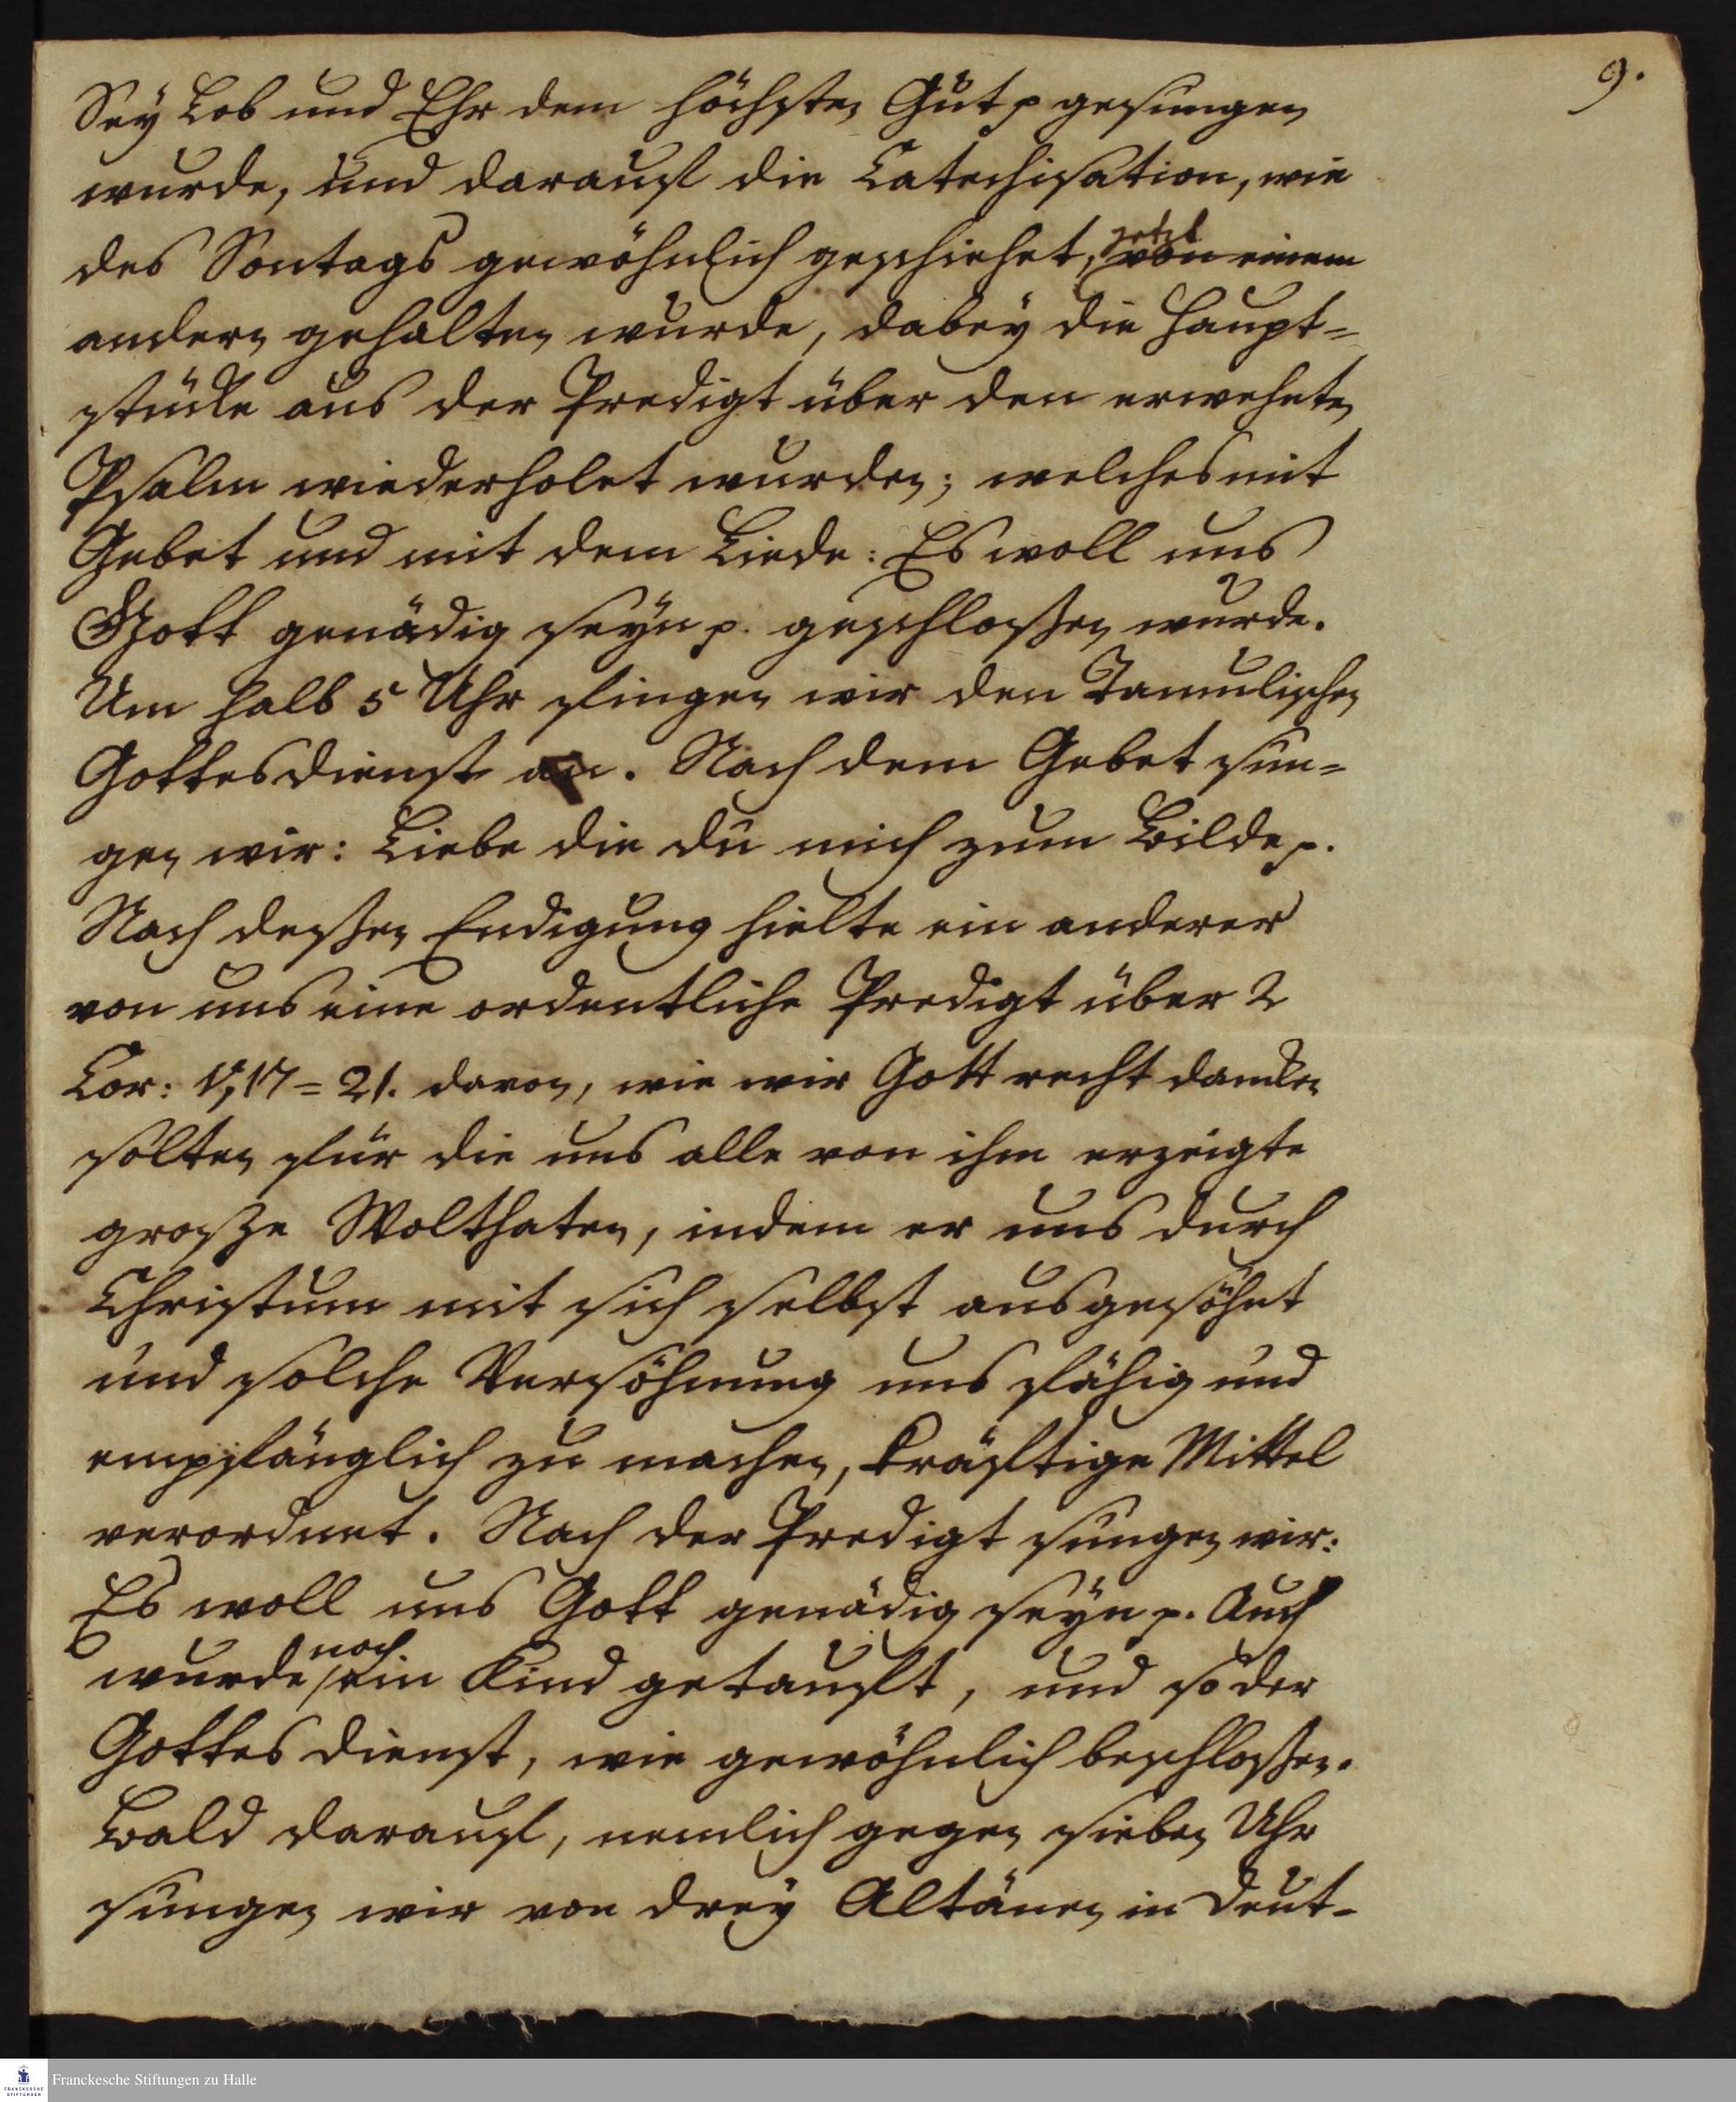 9.
Sey Lob und Ehr dem höchsten Gut p gesungen
wurde, und darauf die Catechisation, wie
des Sontags gewöhnlich geschiehet, jetzt von einem
andern gehalten wurde, dabey die Haupt=
stücke aus der Predigt über den erwehnten
Psalm wiederholet wurden; welches mit
Gebet und mit dem Liede: Es woll uns
Gott genädig seyn p. geschlossen wurde.
Um halb 5 Uhr fingen wir den Tamulischen
Gottesdienst an. Nach dem Gebet sun=
gen wir: Liebe die du mich zum Bilde p.
Nach dessen Endigung hielte ein anderer
von uns eine ordentliche Predigt über 2
Cor: V, 17=21. davon, wie wir Gott recht dancken
solten für die uns alle von ihm erzeigte
grosze Wolthaten, indem er uns durch
Christum mit sich selbst ausgesöhnt
und solche Versöhnung uns fähig und
empfänglich zu machen, kräftige Mittel
verordnet. Nach der Predigt sungen wir:
Es woll uns Gott genädig seyn p. Auch
wurde noch ein Kind getauft, und so der
Gottesdienst, wie gewöhnlich beschlossen.
Bald darauf, nemlich gegen sieben Uhr
sungen wir von drey Altänen in Deut=
Franckesche Stiftungen zu Halle
FRANCKESCHE
STIFTUNGEN